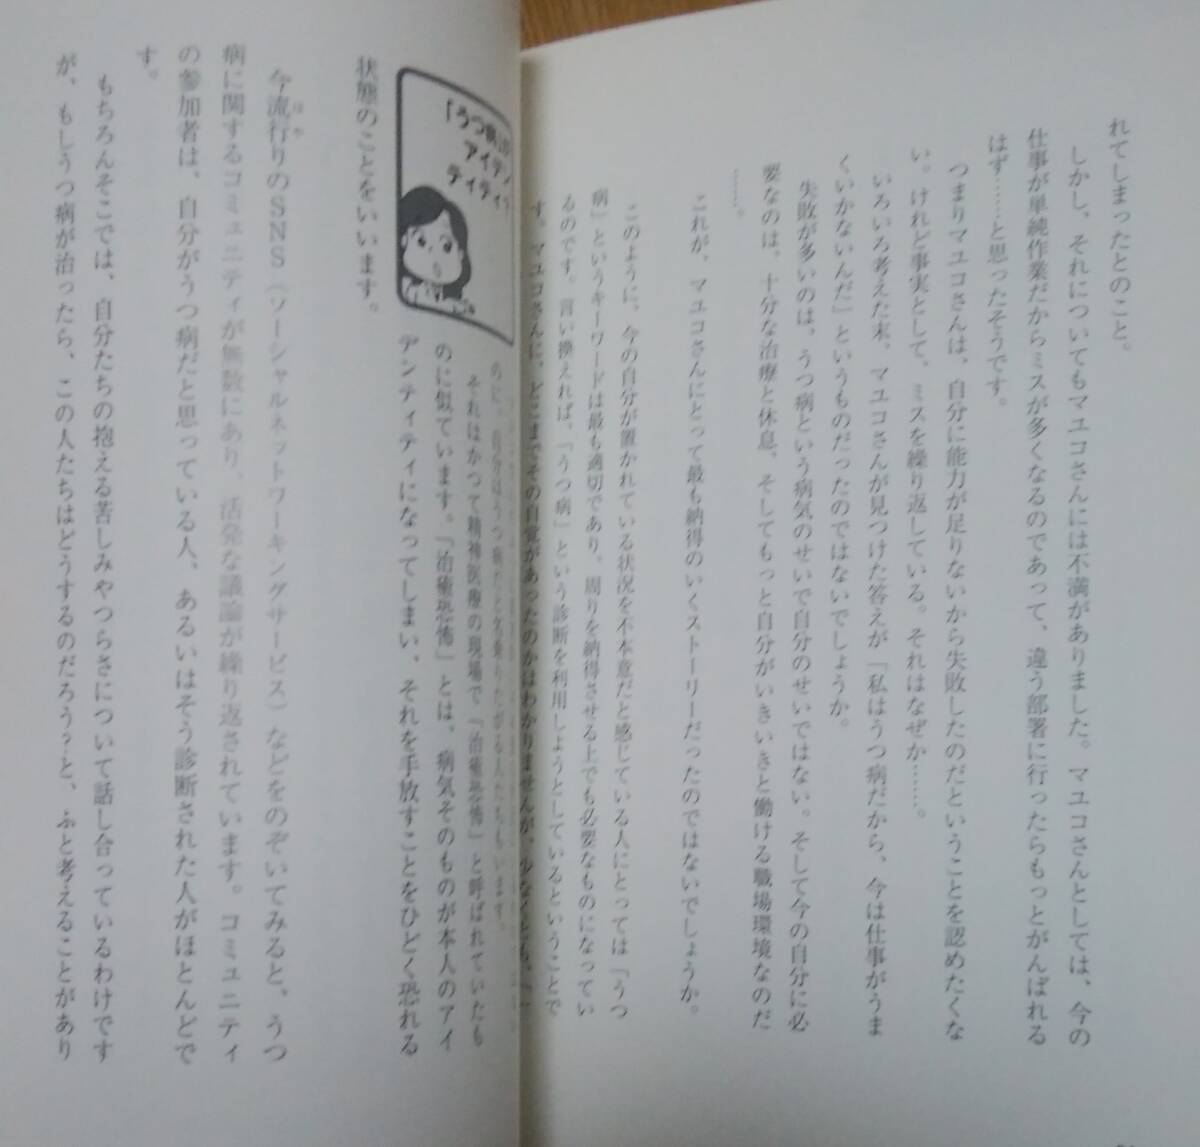 れてしまったとのこと。
しかし、それについてもマユコさんには不満がありました。マユコさんとしては、今の
仕事が単純作業だからミスが多くなるのであって、違う部署に行ったらもっとがんばれる
はず……と思ったそうです。
つまりマユコさんは、自分に能力が足りないから失敗したのだということを認めたくな
い。けれど事実として、ミスを繰り返している。それはなぜか……。
いろいろ考えた末、マユコさんが見つけた答えが「私はうつ病だから、今は仕事がうま
くいかないんだ」というものだったのではないでしょうか。
失敗が多いのは、うつ病という病気のせいで自分のせいではない。そして今の自分に必
要なのは、十分な治療と休息、そしてもっと自分がいきいきと働ける職場環境なのだ
……。
これが、マユコさんにとって最も納得のいくストーリーだったのではないでしょうか。
このように、今の自分が置かれている状況を不本意だと感じている人にとっては「うつ
病」というキーワードは最も適切であり、周りを納得させる上でも必要なものになってい
るのです。言い換えれば、「うつ病」という診断を利用しようとしているということで
す。マユコさんに、どこまでその自覚があったのかはわかりませんが、少なくとも、
「うつ病」が
アイデン
ティティ?
それはかつて精神医療の現場で、「治癒恐怖」と呼ばれていたも
のに似ています。「治癒恐怖」とは、病気そのものが本人のアイ
デンティティになってしまい、それを手放すことをひどく恐れる
状態のことをいいます。
今流行りのSNS（ソーシャルネットワーキングサービス）などをのぞいてみると、うつ
はや
病に関するコミュニティが無数にあり、活発な議論が繰り返されています。コミュニティ
の参加者は、自分がうつ病だと思っている人、あるいはそう診断された人がほとんどで
す。
もちろんそこでは、自分たちの抱える苦しみやつらさについて話し合っているわけです
が、もしうつ病が治ったら、この人たちはどうするのだろう？と、ふと考えることがあり